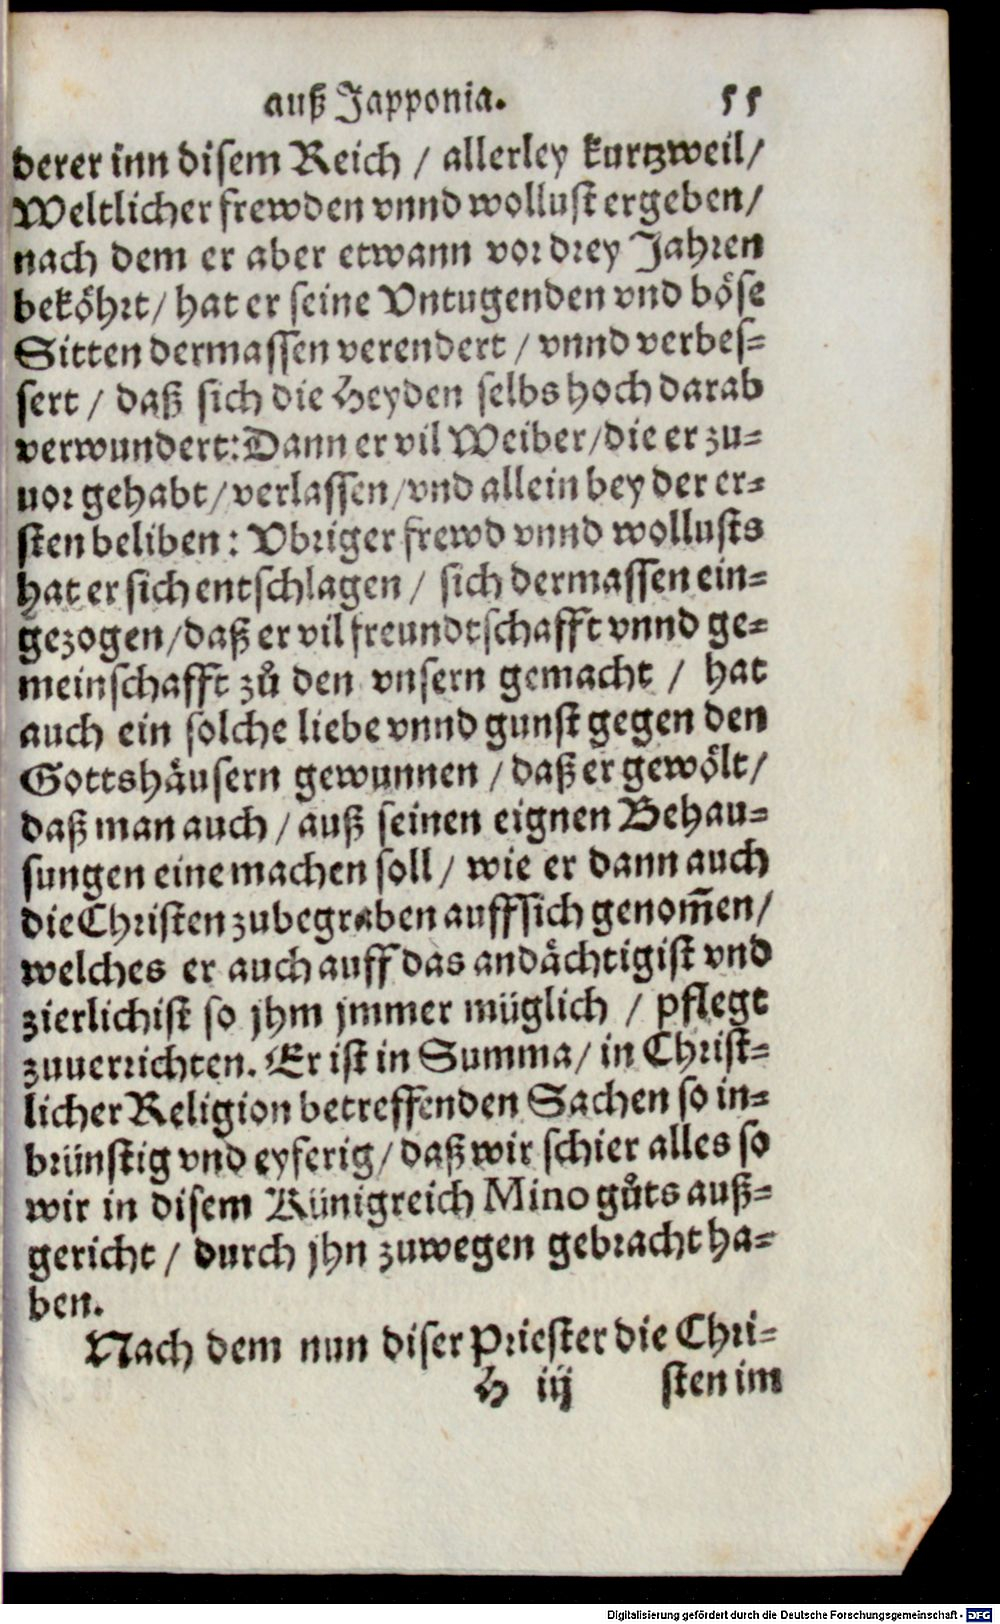 auß Japponia. 55
derer inn disem Reich / allerley kurtzweil /
Weltlicher frewden vnnd wollust ergeben /
nach dem er aber etwann vor drey Jahren
beköhrt / hat er seine Vntugenden vnd böse
Sitten dermassen verendert / vnnd verbes-
sert / daß sich die Heyden selbs hoch darab
verwundert: Dann er vil Weiber / die er zu-
uor gehabt / verlassen / vnd allein bey der er-
sten beliben: Vbriger frewd vnnd wollusts
hat er sich entschlagen / sich dermassen ein-
gezogen / daß er vil freundtschafft vnnd ge-
meinschafft zů den vnsern gemacht / hat
auch ein solche liebe vnnd gunst gegen den
Gottshäusern gewunnen / daß er gewölt /
daß man auch / auß seinen eignen Behau-
sungen eine machen soll / wie er dann auch
die Christen zubegraben auff sich genom̃en /
welches er auch auff das andächtigist vnd
zierlichist so jhm jmmer müglich / pflegt
zuuerrichten. Er ist in Summa / in Christ-
licher Religion betreffenden Sachen so in-
brünstig vnd eyferig / daß wir schier alles so
wir in disem Künigreich Mino gůts auß-
gericht / durch jhn zuwegen gebracht ha-
ben.
Nach dem nun diser Priester die Chri-
H iij sten im
Digitalisierung gefördert durch die Deutsche Forschungsgemeinschaft - DFG